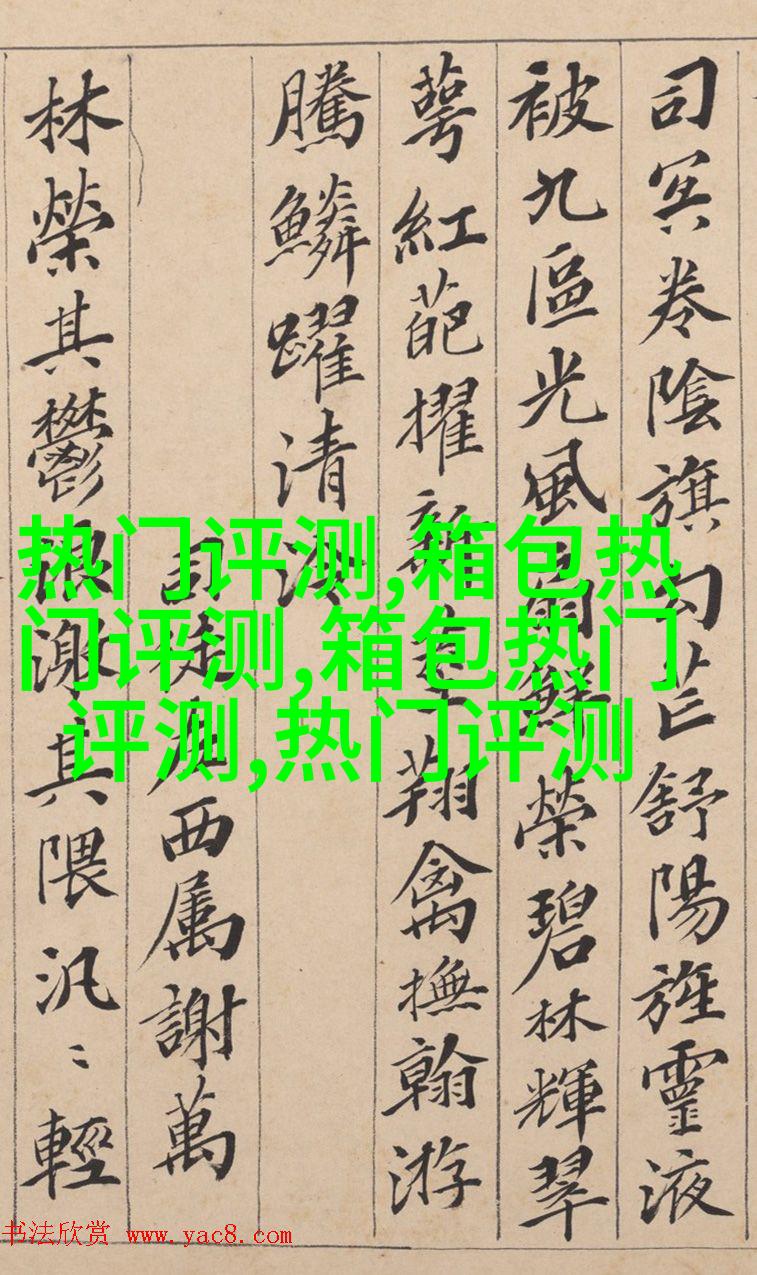 司冥卷陰旗勾芒舒陽旌靈液
被九區光風扇鮮榮碧林輝翠
萼紅葩擢新莖翔禽撫翰游
騰鱗躍清泠
司徒左西属謝萬
林榮其鬱浪激其隈汎〻輕
热门评测,箱包热
门评测,箱包热门
评测,热门评测
书法欣赏 www.yac8.com